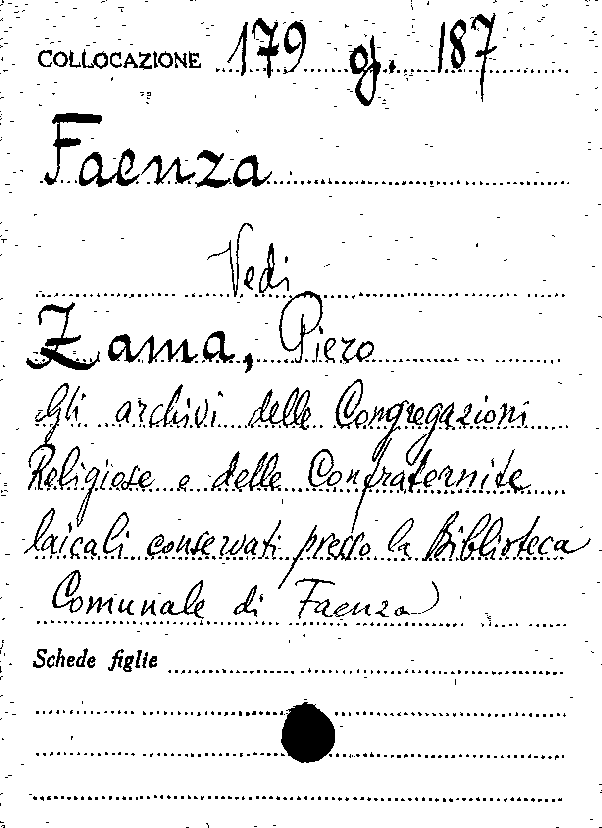 COLLOCAZIONE 179 gj. 187
Faenza
Vedi
Zama, Piero
Gli archivi delle Congregazioni
Religiose e delle Confraternite
laicali conservati presso la Biblioteca
Comunale di Faenza
Schede figlie